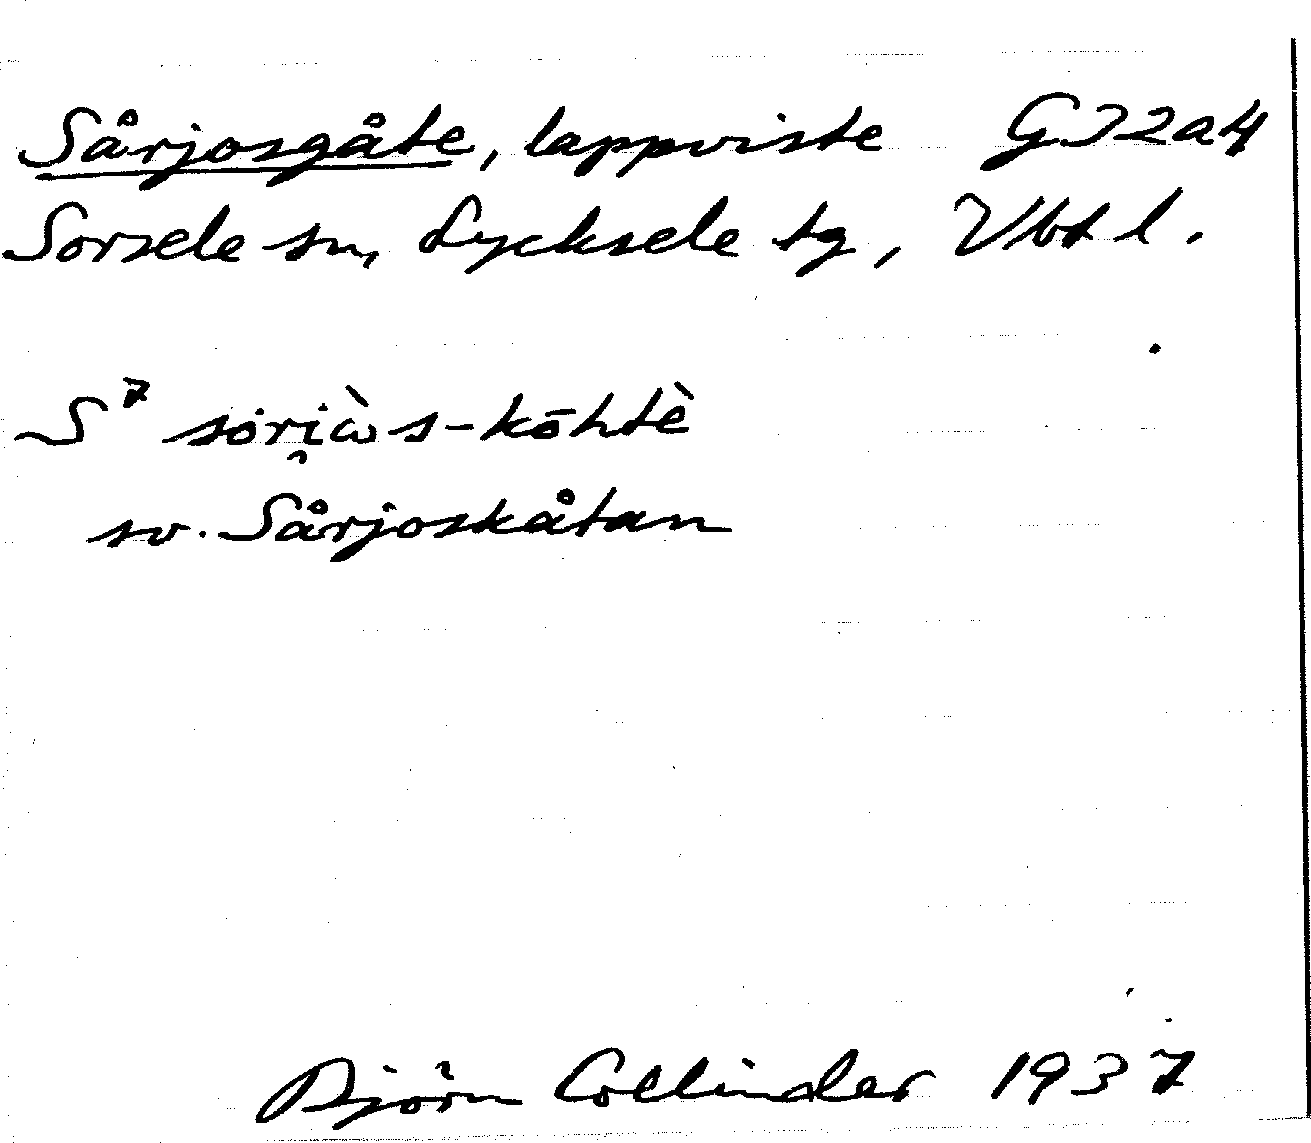 Sårjosgåte, lappviste G32a4
Sorsele sn, Lycksele tg, Vbt l.
S⁷ söri̯ὼs-kōhtè
sv. Sårjoskåtan
Björn Collinder 1937